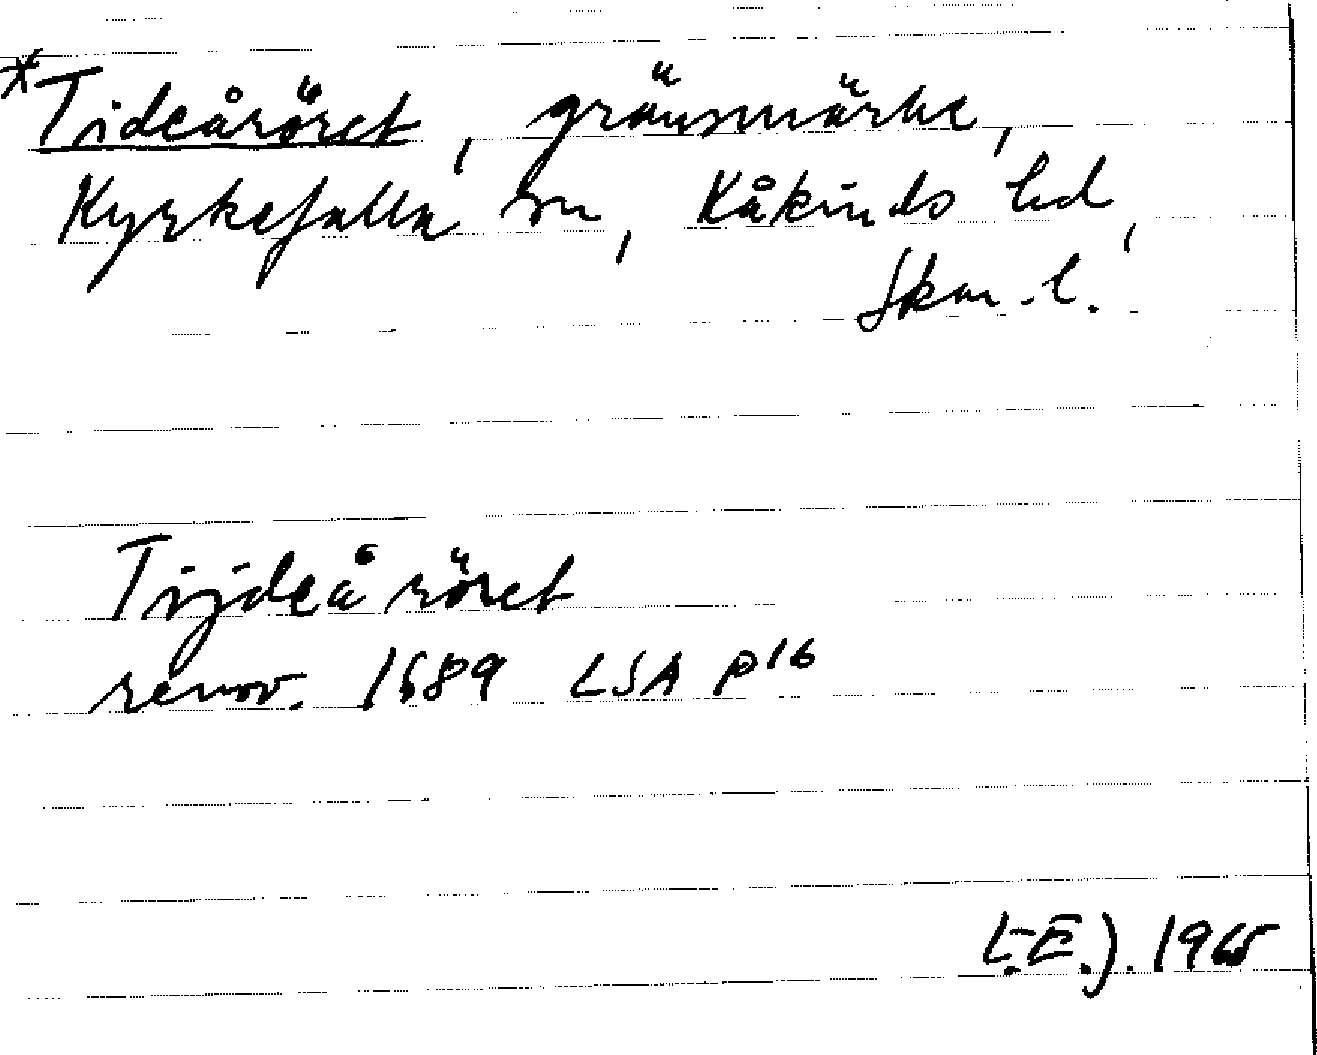 *Tideåröret, gränsmärke,
Kyrkefalla sn, Kåkinds hd,
Skar. l.
Tijdeå röret
renov. 1689 LSA P16
L-E.J. 1965